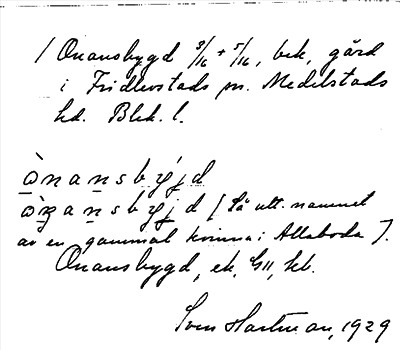 / Onansbygd 3/16 + 5/16, bek, gård
i Fridlevstads sn. Medelstads
hd. Blek. l.
ὼnansbyjd
[Så utt. namnet
av en gammal kvinna i Allaboda].
Onansbygd, ek, GII, kb.
Sven Hartman, 1929